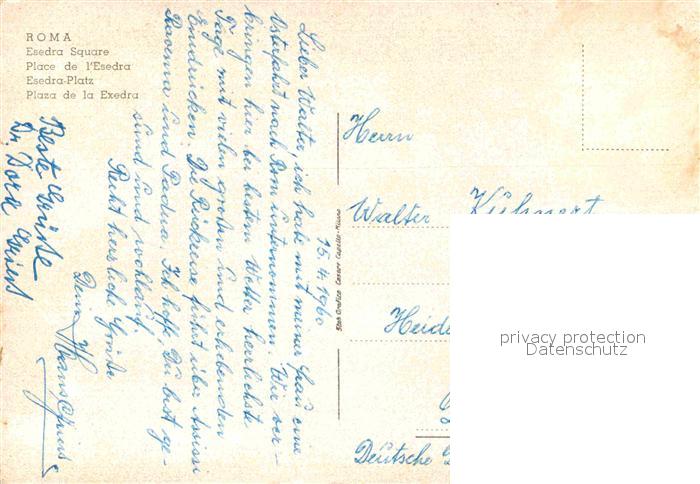 ROMA
Esedra Square
Place de l'Esedra
Esedra-Platz
Plaza de la Exedra
15. 4. 1960
Lieber Walter, ich habe mit meiner Frau eine
Osterfahrt nach Rom unternommen. Wir ver-
bringen hier bei bestem Wetter herrlichste
Tage mit vielen großen und erhebenden
Eindrücken. Die Rückreise führt über Assisi
Ravenna und Padua. Ich hoffe, Du bist ge-
sund und wohlauf.
Recht herrliche Grüße
Dein Hans
Beste Grüße
Dr. Dora
Herrn
Walter Kühnert
Heide
Deutsche
privacy protection
Datenschutz